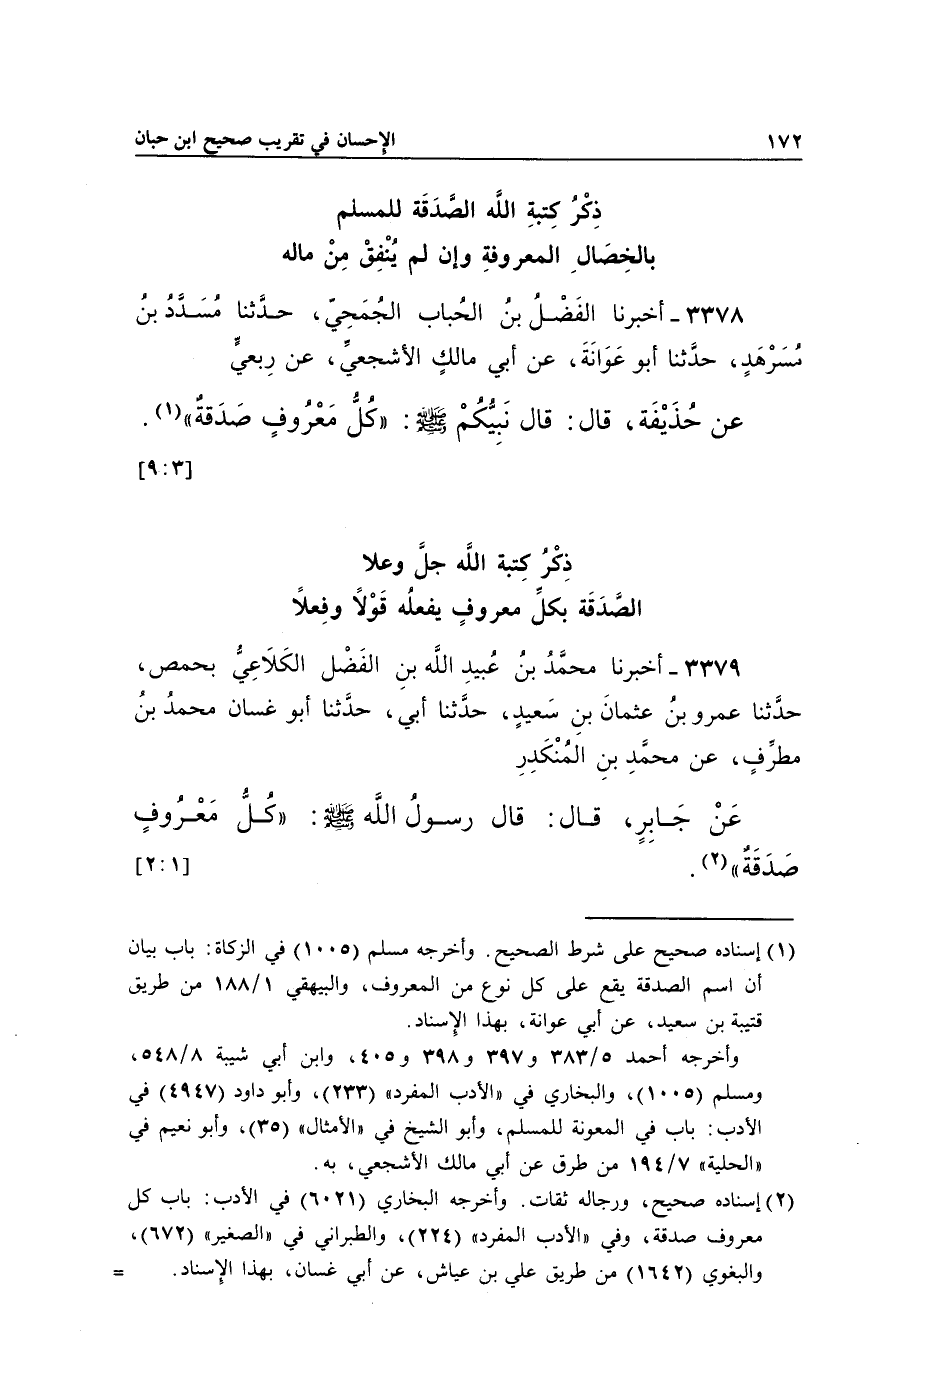 ١٧٢ الإحسان في تقريب صحيح ابن حبان
ذِكْرُ كِتبةِ اللَّه الصَّدَقَة للمسلم
بالخِصَالِ المعروفةِ وإن لم يُنْفِقْ مِنْ ماله
٣٣٧٨ ـ أخبرنا الفَضْلُ بنُ الحُباب الجُمَحِيّ، حدَّثنا مُسَدَّدُ بنُ
مُسَرْهَدٍ، حدَّثنا أبو عَوَانَةَ، عن أبي مالكٍ الأشجعيِّ، عن رِبعيٍّ
عن حُذَيْفَة، قال: قال نَبِيُّكُمْ ﷺ: «كُلُّ مَعْرُوفٍ صَدَقةٌ»(١).
[٩:٣]
ذِكْرُ كِتبة اللَّه جلَّ وعلا
الصَّدَقَة بكلِّ معروفٍ يفعلُه قَوْلاً وفِعلاً
٣٣٧٩ ـ أخبرنا محمَّدُ بنُ عُبيدِ اللَّه بنِ الفَضْل الكَلَاعِيُّ بحمص،
حدَّثنا عمرو بنُ عثمانَ بنِ سَعيدٍ، حدَّثنا أبي، حدَّثنا أبو غسان محمدُ بنُ
مطرِّفٍ، عن محمَّدِ بنِ المُنْكَدِرِ
عَنْ جَابِرٍ، قال: قال رسولُ اللَّه ﷺ: «كُلُّ مَعْرُوفٍ
صَدَقَةٌ»(٢). [٢:١]
(١) إسناده صحيح على شرط الصحيح. وأخرجه مسلم (١٠٠٥) في الزكاة: باب بيان
أن اسم الصدقة يقع على كل نوع من المعروف، والبيهقي ١٨٨/١ من طريق
قتيبة بن سعيد، عن أبي عوانة، بهذا الإسناد.
وأخرجه أحمد ٣٨٣/٥ و٣٩٧ و٣٩٨ و٤٠٥، وابن أبي شيبة ٥٤٨/٨،
ومسلم (١٠٠٥)، والبخاري في «الأدب المفرد» (٢٣٣)، وأبو داود (٤٩٤٧) في
الأدب: باب في المعونة للمسلم، وأبو الشيخ في «الأمثال» (٣٥)، وأبو نعيم في
«الحلية» ١٩٤/٧ من طرق عن أبي مالك الأشجعي، به.
(٢) إسناده صحيح، ورجاله ثقات. وأخرجه البخاري (٦٠٢١) في الأدب: باب كل
معروف صدقة، وفي «الأدب المفرد» (٢٢٤)، والطبراني في «الصغير» (٦٧٢)،
والبغوي (١٦٤٢) من طريق علي بن عياش، عن أبي غسان، بهذا الإسناد. =